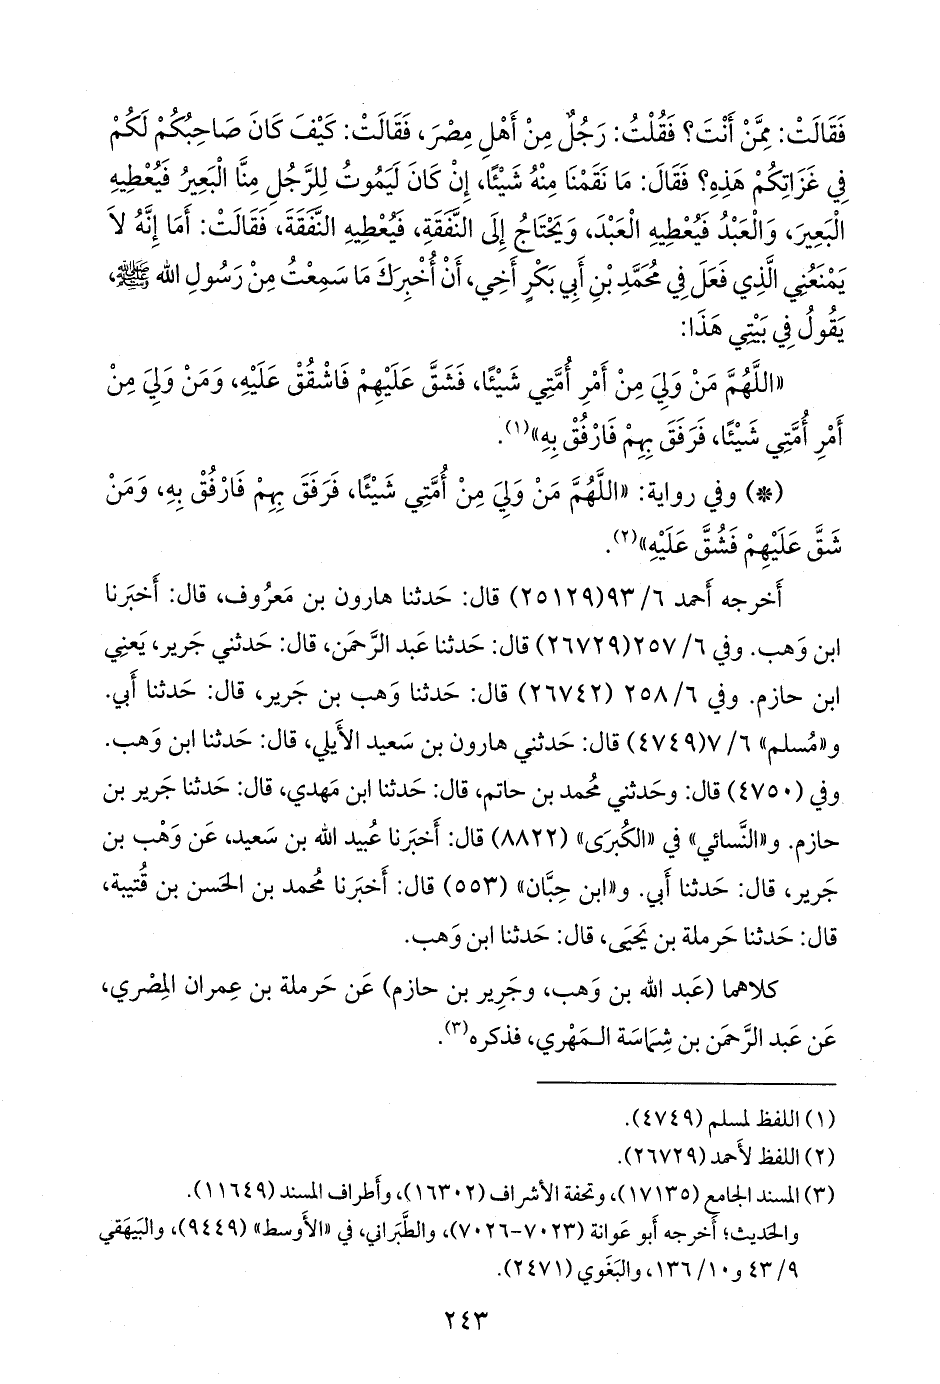 فَقَالَتْ: مِمَّنْ أَنْتَ؟ فَقُلْتُ: رَجُلٌ مِنْ أَهْلِ مِصْرَ، فَقَالَتْ: كَيْفَ كَانَ صَاحِبُكُمْ لَكُمْ
فِي غَزَاتِكُمْ هَذِهِ؟ فَقَالَ: مَا نَقَمْنَا مِنْهُ شَيْئًا، إِنْ كَانَ لَيَمُوتُ لِلرَّجُلِ مِنَّا الْبَعِيرُ فَيُعْطِيهِ
الْبَعِيرَ، وَالْعَبْدُ فَيُعْطِيهِ الْعَبْدَ، وَيَحْتَاجُ إِلَى النَّفَقَةِ، فَيُعْطِيهِ النَّفَقَةَ، فَقَالَتْ: أَمَا إِنَّهُ لاَ
يَمْنَعُنِي الَّذِي فَعَلَ فِي مُحَمَّدِ بْنِ أَبِي بَكْرٍ أَخِي، أَنْ أُخْبِرَكَ مَا سَمِعْتُ مِنْ رَسُولِ الله ﷺ،
يَقُولُ فِي بَيْتِي هَذَا:
«اللَّهُمَّ مَنْ وَلِيَ مِنْ أَمْرِ أُمَّتِي شَيْئًا، فَشَقَّ عَلَيْهِمْ فَاشْقُقْ عَلَيْهِ، وَمَنْ وَلِيَ مِنْ
أَمْرِ أُمَّتِي شَيْئًا، فَرَفَقَ بِهِمْ فَارْفُقْ بِهِ»(١).
(*) وفي رواية: «اللَّهُمَّ مَنْ وَلِيَ مِنْ أُمَّتِي شَيْئًا، فَرَفَقَ بِهِمْ فَارْفُقْ بِهِ، وَمَنْ
شَقَّ عَلَيْهِمْ فَشُقَّ عَلَيْهِ»(٢).
أَخرجه أَحمد ٦/ ٩٣(٢٥١٢٩) قال: حَدثنا هارون بن مَعرُوف، قال: أَخبَرنا
ابن وَهب. وفي ٦/ ٢٥٧(٢٦٧٢٩) قال: حَدثنا عَبد الرَّحمَن، قال: حَدثني جَرير، يَعنِي
ابن حازم. وفي ٦/ ٢٥٨ (٢٦٧٤٢) قال: حَدثنا وَهب بن جَرير، قال: حَدثنا أَبي.
و«مُسلم» ٦/ ٧(٤٧٤٩) قال: حَدثني هارون بن سَعيد الأَيلي، قال: حَدثنا ابن وَهب.
وفي (٤٧٥٠) قال: وحَدثني مُحمد بن حاتم، قال: حَدثنا ابن مَهدي، قال: حَدثنا جَرير بن
حازم. و«النَّسائي» في «الكُبرَى» (٨٨٢٢) قال: أَخبَرنا عُبيد الله بن سَعيد، عَن وَهْب بن
جَرير، قال: حَدثنا أَبي. و«ابن حِبَّان» (٥٥٣) قال: أَخبَرنا مُحمد بن الحَسن بن قُتيبة،
قال: حَدثنا حَرملة بن يَحيَى، قال: حَدثنا ابن وَهب.
كلاهما (عَبد الله بن وَهب، وجَرِير بن حازم) عَن حَرملة بن عِمران المِصْري،
عَن عَبد الرَّحمَن بن شِمَاسَة الـمَهْري، فذكره(٣).
(١) اللفظ لمسلم (٤٧٤٩).
(٢) اللفظ لأَحمد (٢٦٧٢٩).
(٣) المسند الجامع (١٧١٣٥)، وتحفة الأشراف (١٦٣٠٢)، وأَطراف المسند (١١٦٤٩).
والحَديث؛ أَخرجه أَبو عَوانة (٧٠٢٣-٧٠٢٦)، والطَّبَراني، في «الأَوسط» (٩٤٤٩)، والبَيهَقي
٩/ ٤٣ و١٠/ ١٣٦، والبَغَوي (٢٤٧١).
٢٤٣